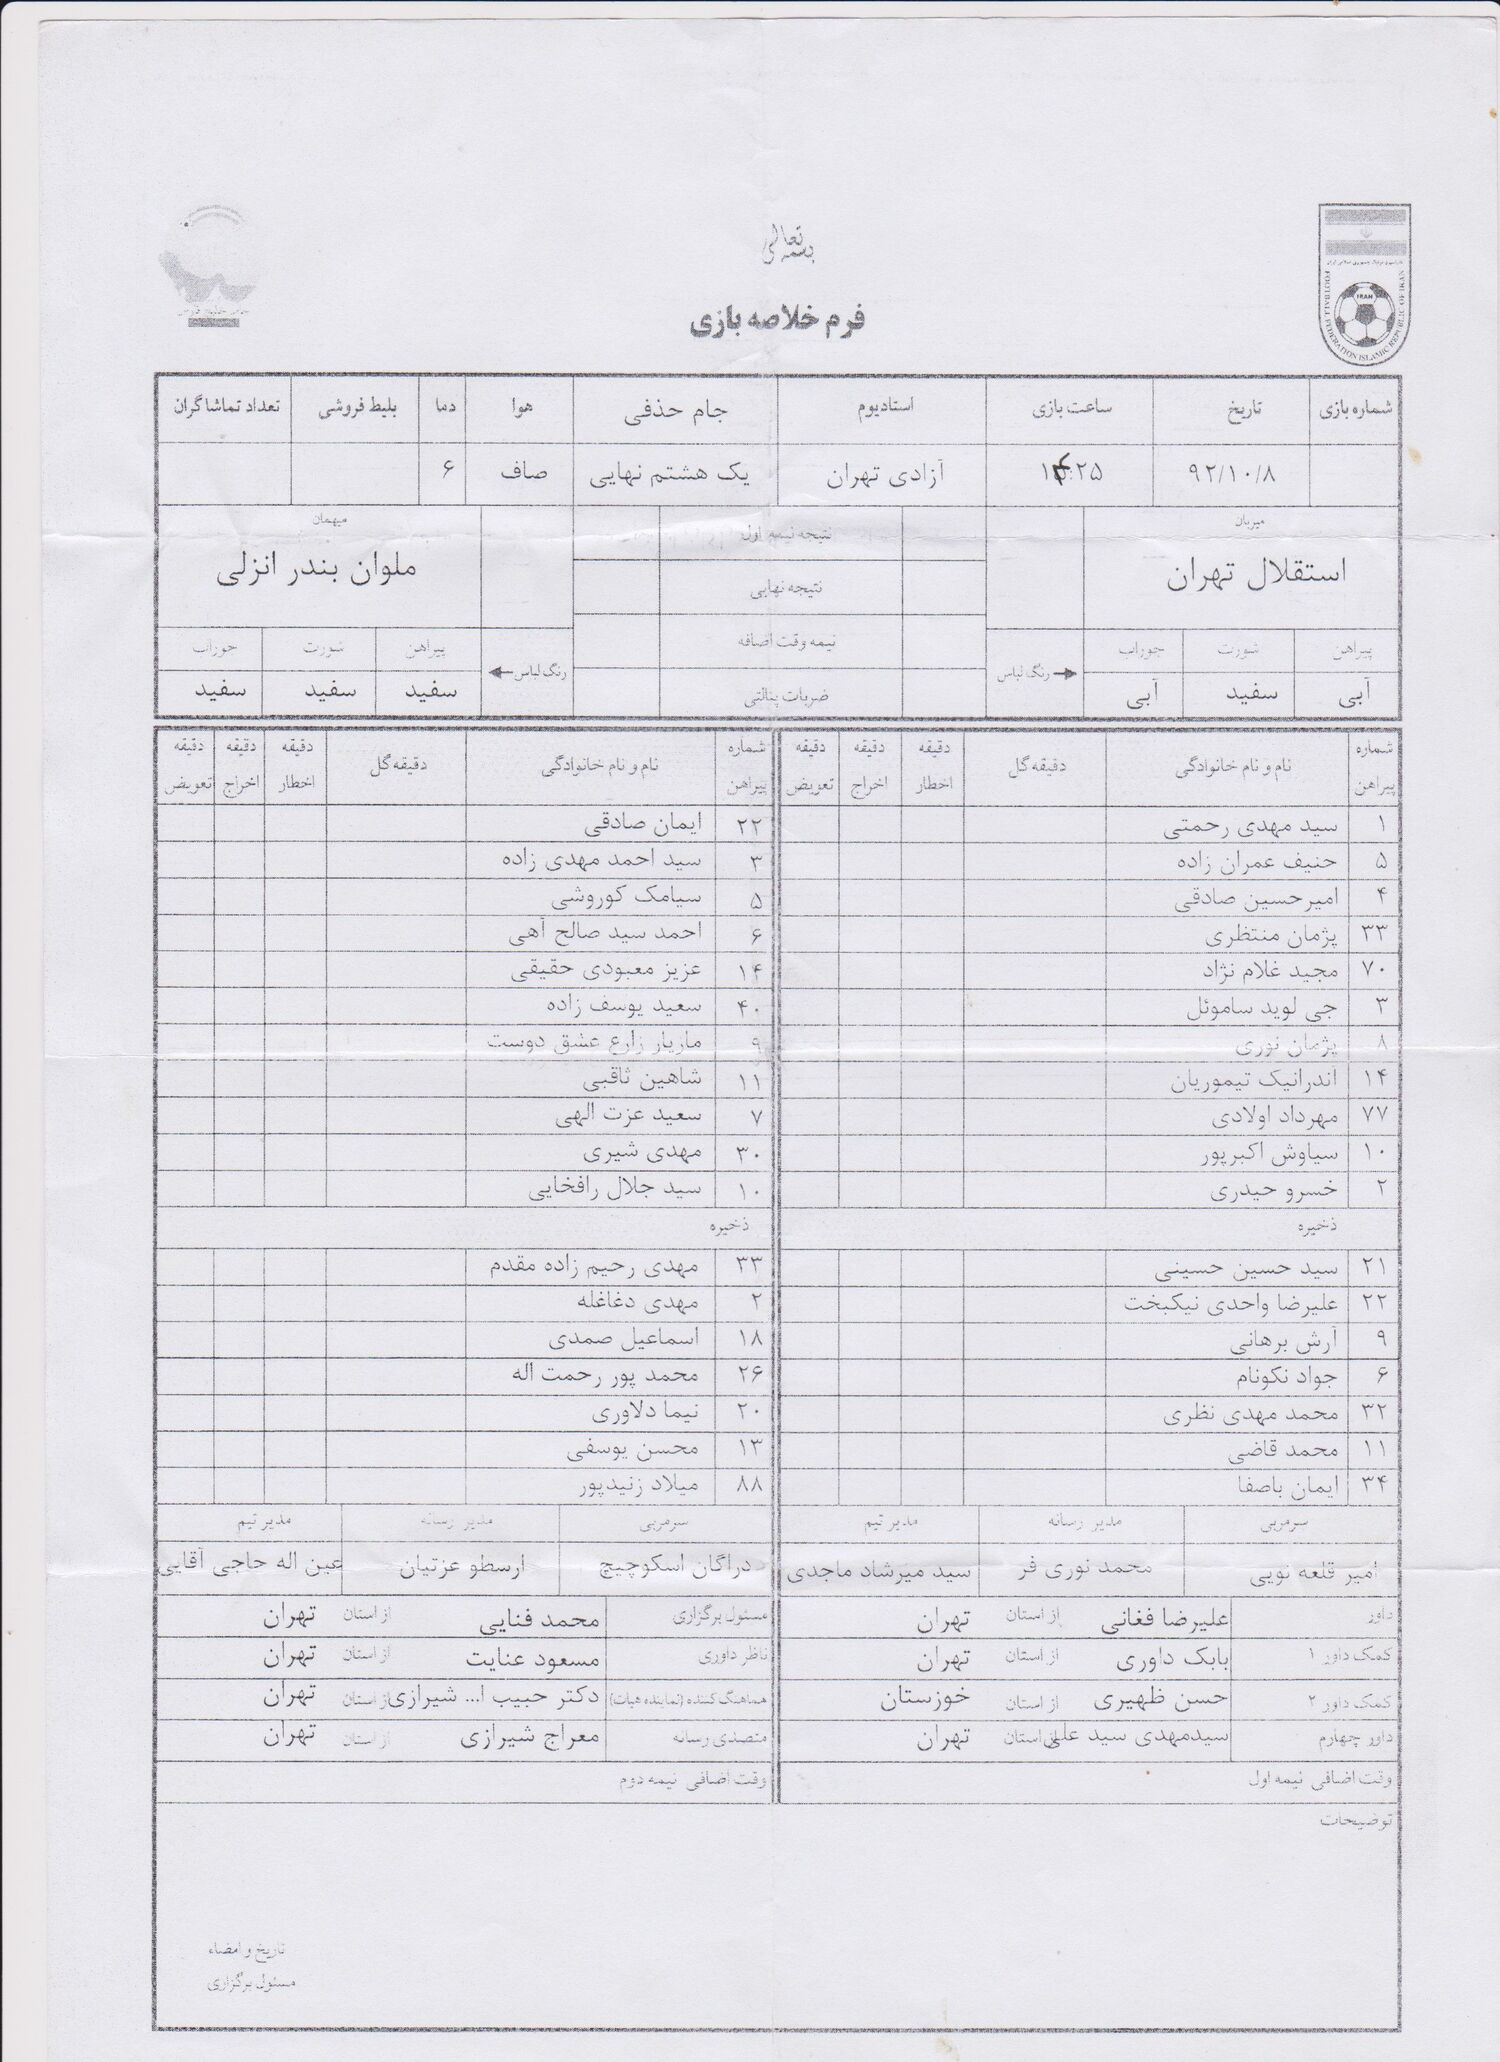 بسمه تعالی
FOOTBALL FEDERATION ISLAMIC REPUBLIC OF IRAN
IRAN
فرم خلاصه بازی
شماره بازی تاریخ ساعت بازی استادیوم جام حذفی هوا دما بلیط فروشی تعداد تماشاگران
۹۲/۱۰/۸ ۱۴:۲۵ آزادی تهران یک هشتم نهایی صاف ۶
میزبان نتیجه نیمه اول میهمان
استقلال تهران نتیجه نهایی ملوان بندر انزلی
نیمه وقت اضافه
پیراهن شورت جوراب رنگ لباس ضربات پنالتی رنگ لباس پیراهن شورت جوراب
آبی سفید آبی سفید سفید سفید
شماره پیراهن نام و نام خانوادگی دقیقه گل دقیقه اخطار دقیقه اخراج دقیقه تعویض شماره پیراهن نام و نام خانوادگی دقیقه گل دقیقه اخطار دقیقه اخراج دقیقه تعویض
۱ سید مهدی رحمتی ۲۲ ایمان صادقی
۵ حنیف عمران زاده ۳ سید احمد مهدی زاده
۴ امیرحسین صادقی ۵ سیامک کوروشی
۳۳ پژمان منتظری ۶ احمد سید صالح آهی
۷۰ مجید غلام نژاد ۱۴ عزیز معبودی حقیقی
۳ جی لوید ساموئل ۴۰ سعید یوسف زاده
۸ پژمان نوری ۹ مازیار زارع عشق دوست
۱۴ آندرانیک تیموریان ۱۱ شاهین ثاقبی
۷۷ مهرداد اولادی ۷ سعید عزت الهی
۱۰ سیاوش اکبرپور ۳۰ مهدی شیری
۲ خسرو حیدری ۱۰ سید جلال رافخایی
ذخیره ذخیره
۲۱ سید حسین حسینی ۳۳ مهدی رحیم زاده مقدم
۲۲ علیرضا واحدی نیکبخت ۲ مهدی دغاغله
۹ آرش برهانی ۱۸ اسماعیل صمدی
۶ جواد نکونام ۲۶ محمد پور رحمت اله
۳۲ محمد مهدی نظری ۲۰ نیما دلاوری
۱۱ محمد قاضی ۱۳ محسن یوسفی
۳۴ ایمان باصفا ۸۸ میلاد زنیدپور
سرمربی مدیر رسانه مدیر تیم سرمربی مدیر رسانه مدیر تیم
امیر قلعه نویی محمد نوری فر سید میرشاد ماجدی دراگان اسکوچیچ ارسطو عزتیان عین اله حاجی آقایی
داور علیرضا فغانی از استان تهران مسئول برگزاری محمد فنایی از استان تهران
کمک داور ۱ بابک داوری از استان تهران ناظر داوری مسعود عنایت از استان تهران
کمک داور ۲ حسن ظهیری از استان خوزستان هماهنگ کننده (نماینده هیات) دکتر حبیب ا... شیرازی از استان تهران
داور چهارم سیدمهدی سید علی از استان تهران متصدی رسانه معراج شیرازی از استان تهران
وقت اضافی نیمه اول وقت اضافی نیمه دوم
توضیحات
تاریخ و امضاء
مسئول برگزاری